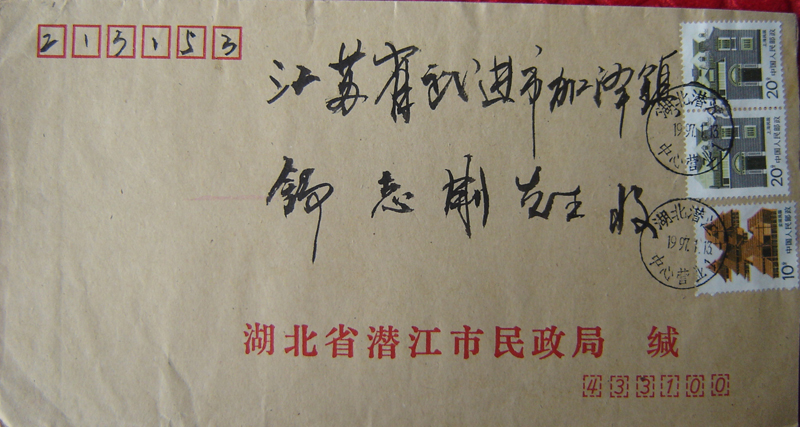 213153
江苏省武进市加泽镇
志 先生 收
湖北省潜江市民政局 缄
433100
20分 中国人民邮政
20分 中国人民邮政
10分 中国人民邮政
湖北潜江
1997.1.13
湖北潜江
1997.1.13